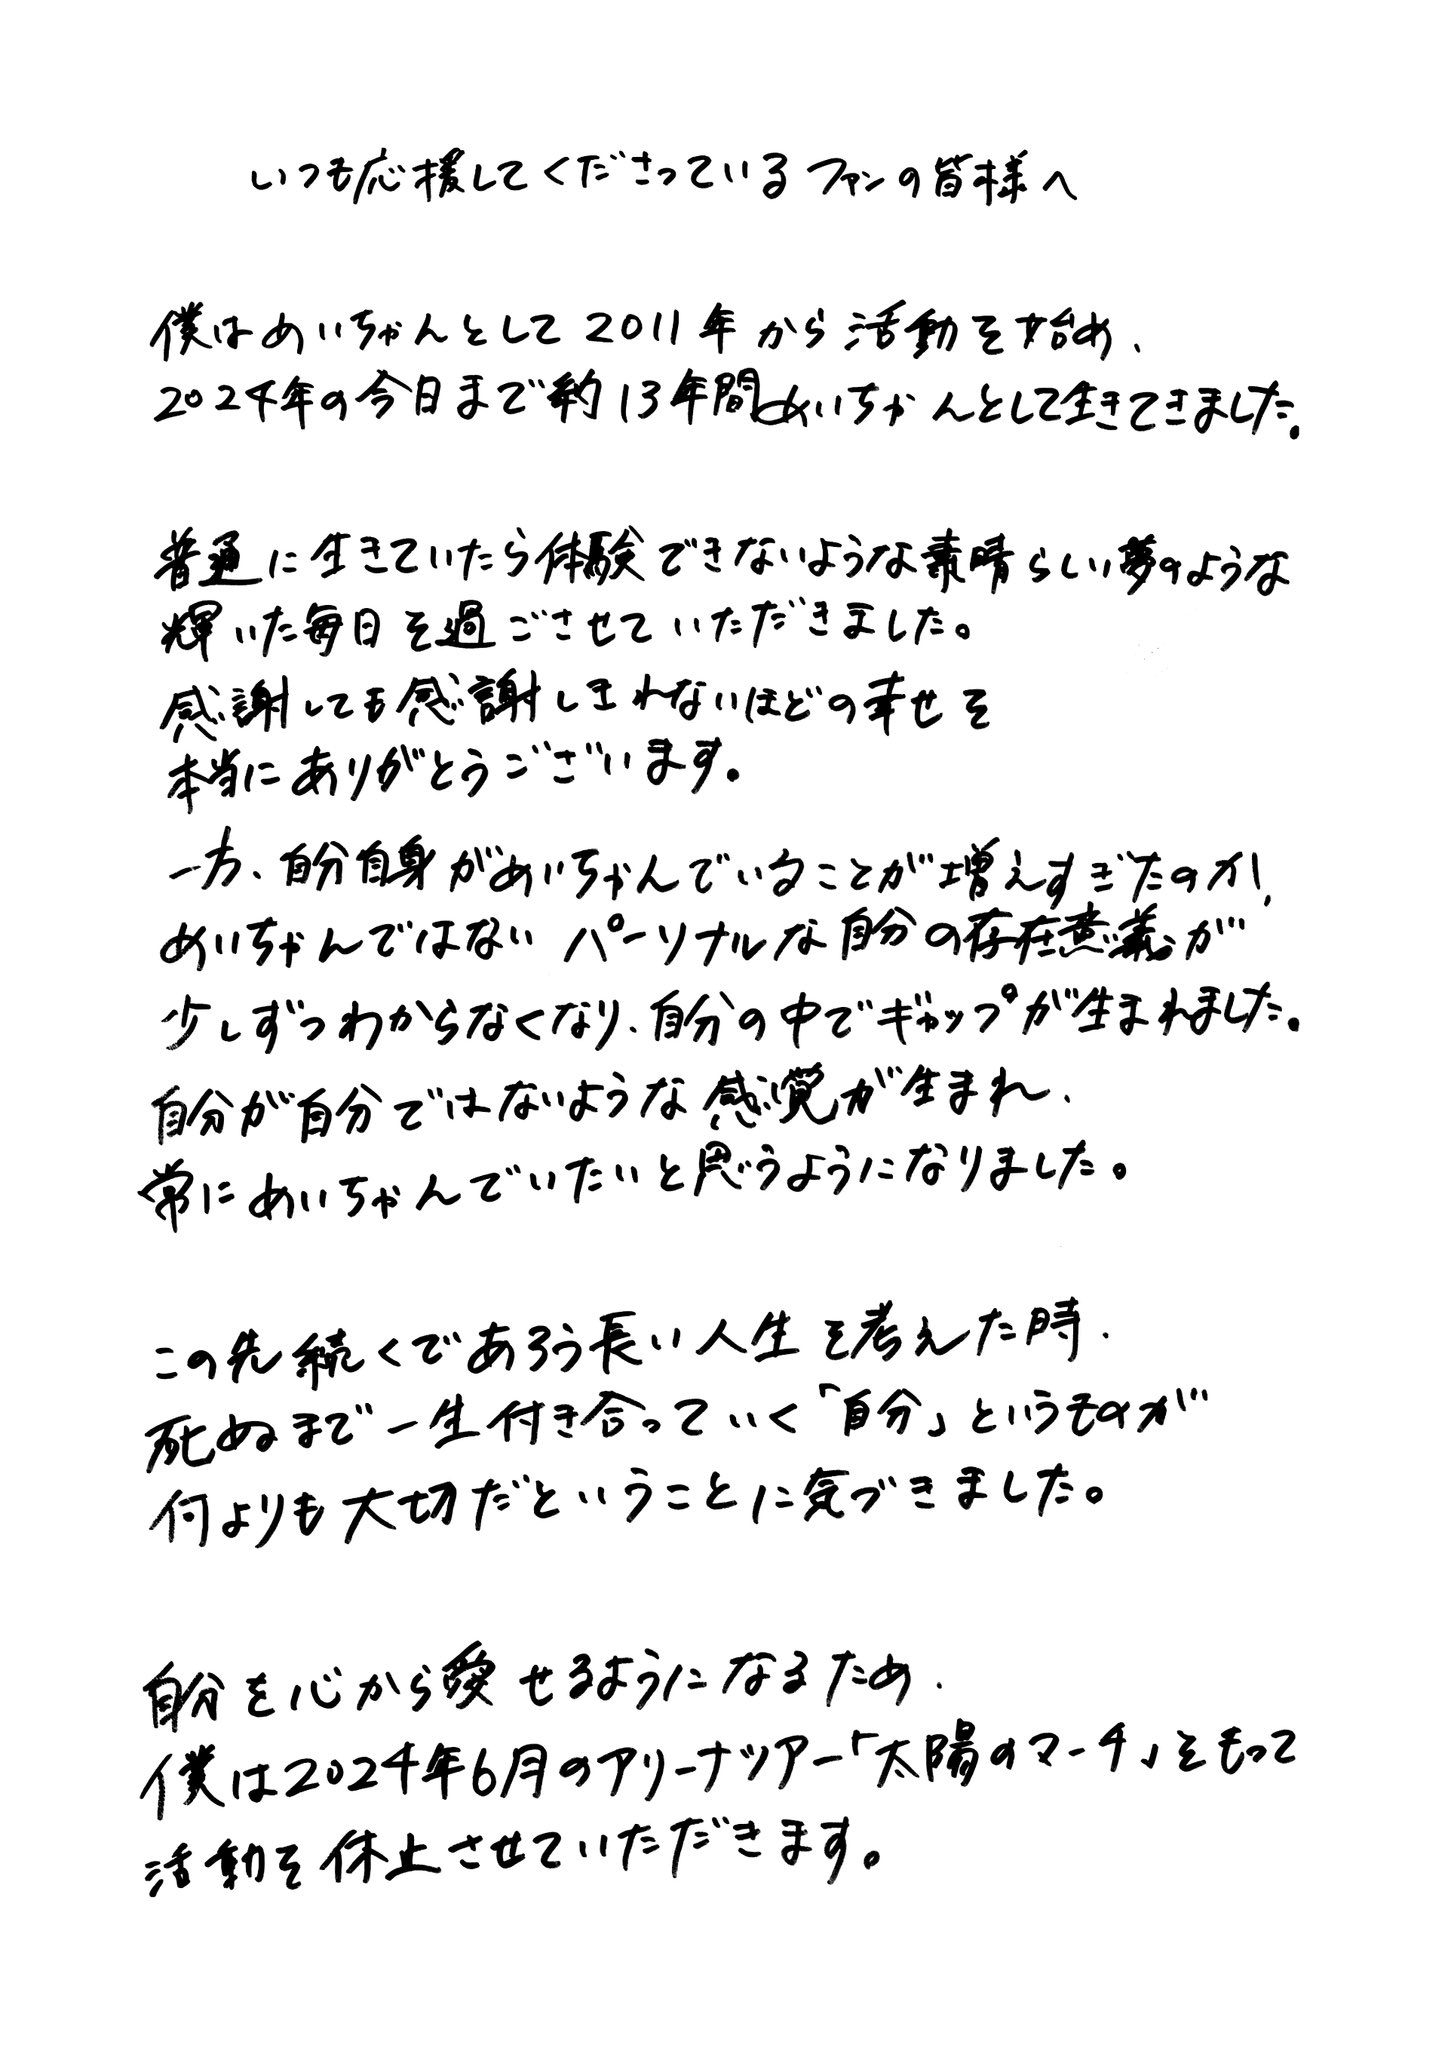 いつも応援してくださっているファンの皆様へ
僕はめいちゃんとして2011年から活動を始め、
2024年の今日まで約13年間めいちゃんとして生きてきました。
普通に生きていたら体験できないような素晴らしい夢のような
輝いた毎日を過ごさせていただきました。
感謝しても感謝しきれないほどの幸せを
本当にありがとうございます。
一方、自分自身がめいちゃんでいることが増えすぎたのか、
めいちゃんではないパーソナルな自分の存在意義が
少しずつわからなくなり、自分の中でギャップが生まれました。
自分が自分ではないような感覚が生まれ、
常にめいちゃんでいたいと思うようになりました。
この先続くであろう長い人生を考えた時、
死ぬまで一生付き合っていく「自分」というものが
何よりも大切だということに気づきました。
自分を心から愛せるようになるため、
僕は2024年6月のアリーナツアー「太陽のマーチ」をもって
活動を休止させていただきます。